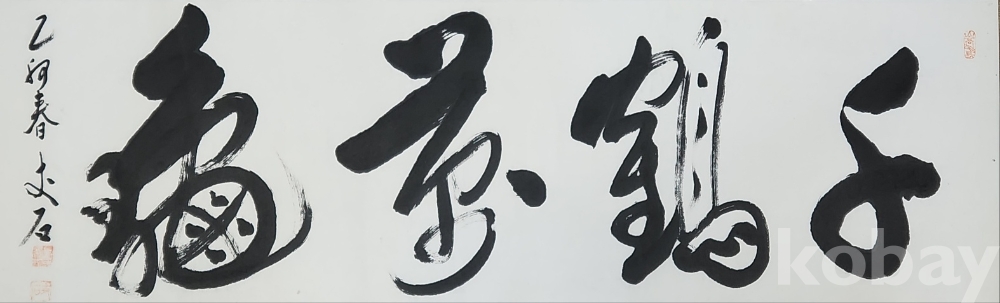 千鶴萬龜
乙卯春 史石
kobay